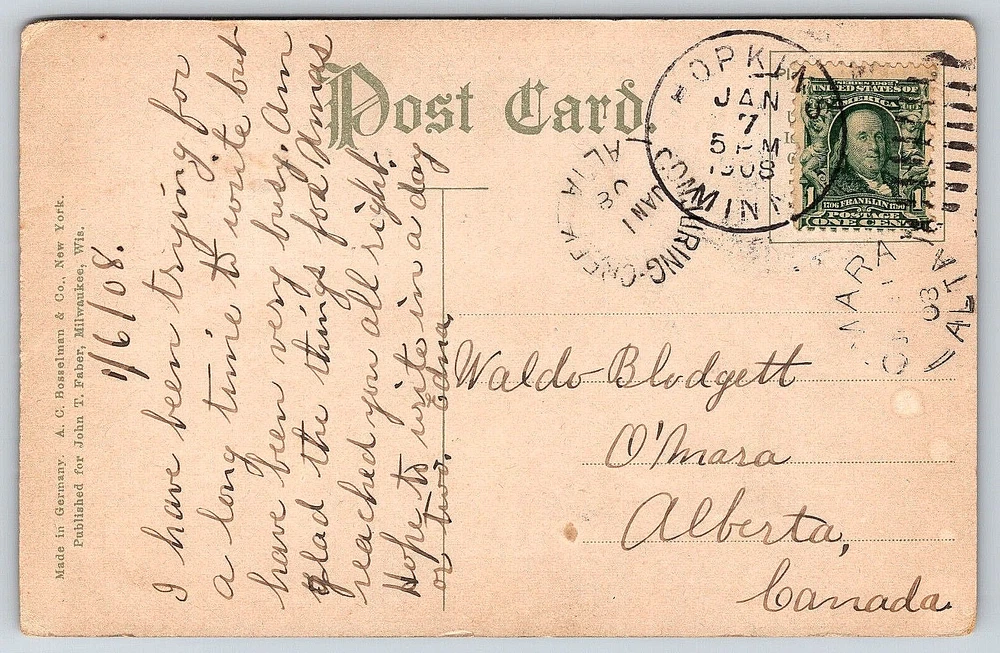 Post Card.
Made in Germany. A. C. Bosselman & Co., New York.
Published for John T. Faber, Milwaukee, Wis.
1/6/08.
I have been trying for
a long time to write but
have been very busy. Am
glad the things for Xmas
reached you all right.
Hope to write in a day
or two. Edna.
HOPKINS
JAN
7
5 PM
1908
MINN.
SERIES 1902
UNITED STATES OF
AMERICA
1 1
1706 FRANKLIN 1790
POSTAGE
ONE CENT
JAN 1
08
ALTA
MARA
08
ALTA
Waldo Blodgett
O'Mara
Alberta,
Canada.